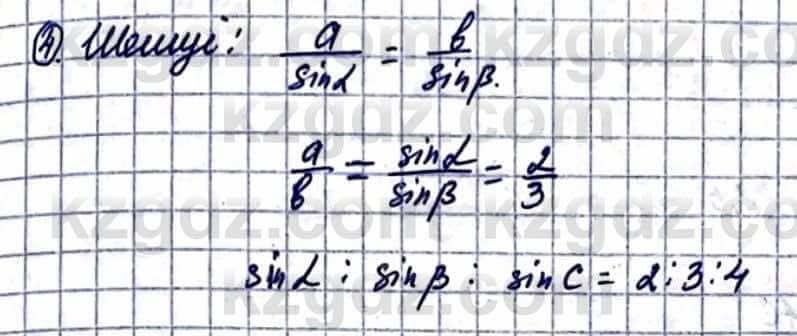 4. Шешуі: a/sinα = b/sinβ.
a/b = sinα/sinβ = 2/3
sinα : sinβ : sinC = 2:3:4
kzgdz.com